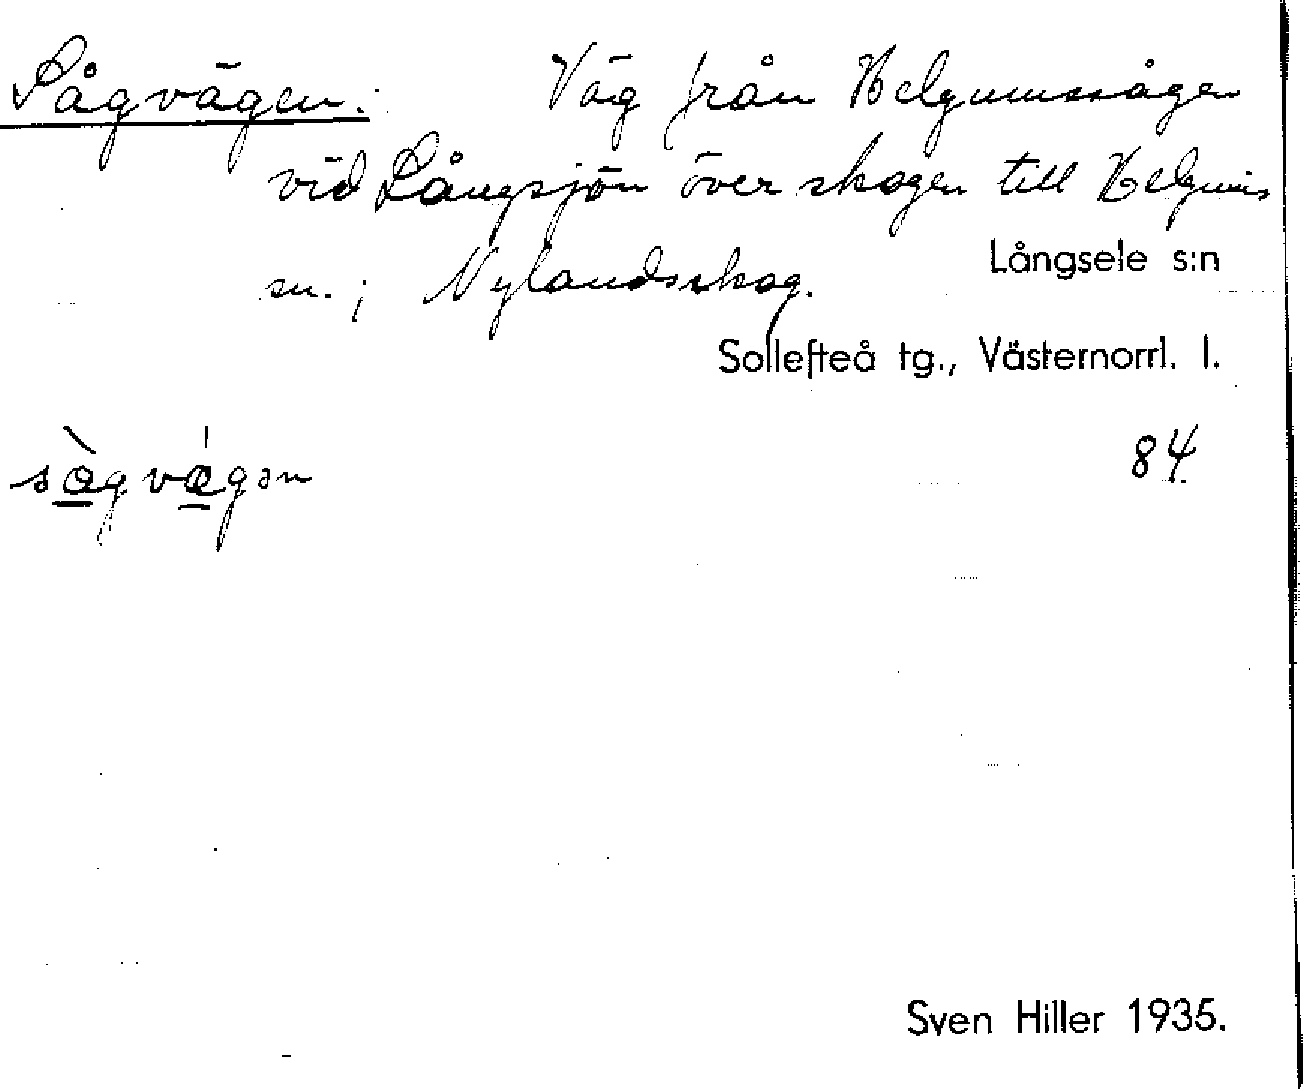 Sågvägen. Väg från Helgumssågen
vid Långsjön över skogen till Helgums
sn. ; Nylandsskog. Långsele s:n
Sollefteå tg., Västernorrl. l.
sågvägən 84
Sven Hiller 1935.